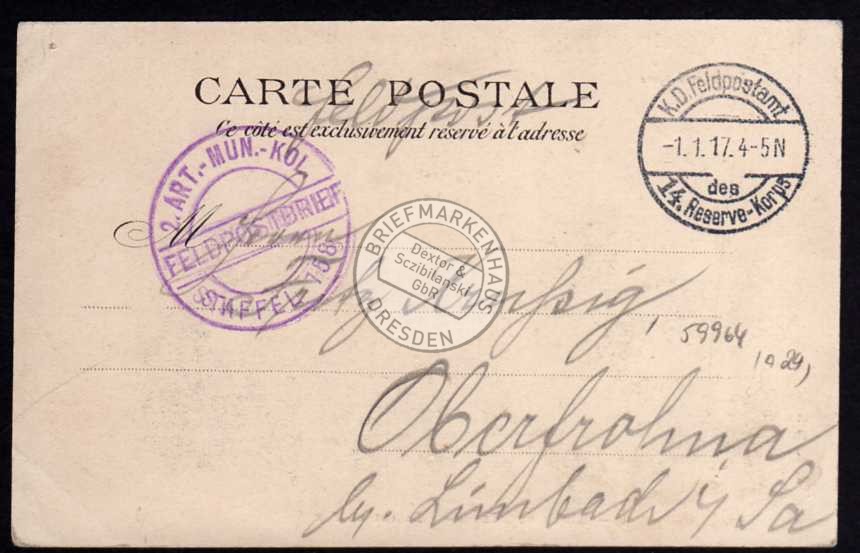 Feldpost
CARTE POSTALE
Ce côté est exclusivement réservé à l'adresse
K.D. Feldpostamt
-1.1.17. 4-5N
des
14. Reserve-Korps
2. ART.-MUN.-KOL.
FELDPOSTBRIEF
STAFFEL 158
BRIEFMARKENHAUS
Dextor &
Sczibilanski
GbR
DRESDEN
M
Herrn
Fritz
59964
Oberfrohna
by. Limbach i/ Sa